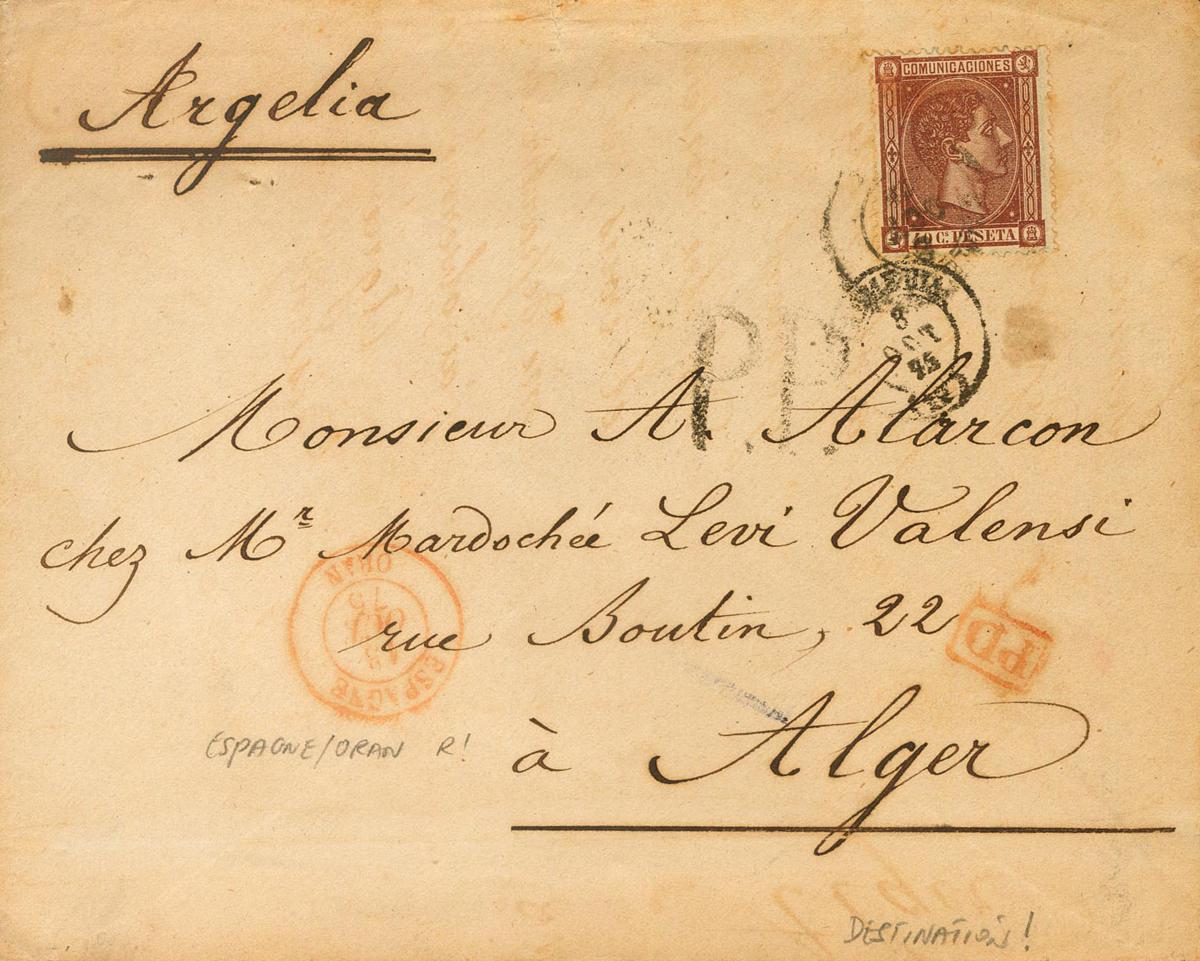 Argelia
COMUNICACIONES
40 Cs PESETA
8
OCT
75
P.P.
Monsieur A. Alarcon
chez Mr Mardochée Levi Valensi
rue Boutin, 22
PD
à Alger
ORAN
75
OCT
ESPAGNE
ESPAGNE/ORAN R!
DESTINATION!